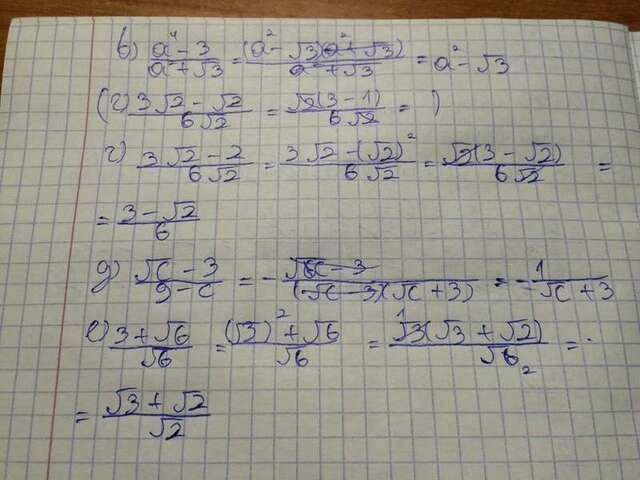 в) (a⁴ - 3)/(a² + √3) = ((a² - √3)(a² + √3))/(a² + √3) = a² - √3
(г) (3√2 - √2)/(6√2) = (√2(3 - 1))/(6√2) = )
г) (3√2 - 2)/(6√2) = (3√2 - (√2)²)/(6√2) = (√2(3 - √2))/(6√2) =
= (3 - √2)/6
д) (√c - 3)/(9 - c) = - (√c - 3)/((√c - 3)(√c + 3)) = - 1/(√c + 3)
е) (3 + √6)/√6 = ((√3)² + √6)/√6 = (√3(√3 + √2))/√6 =
= (√3 + √2)/√2